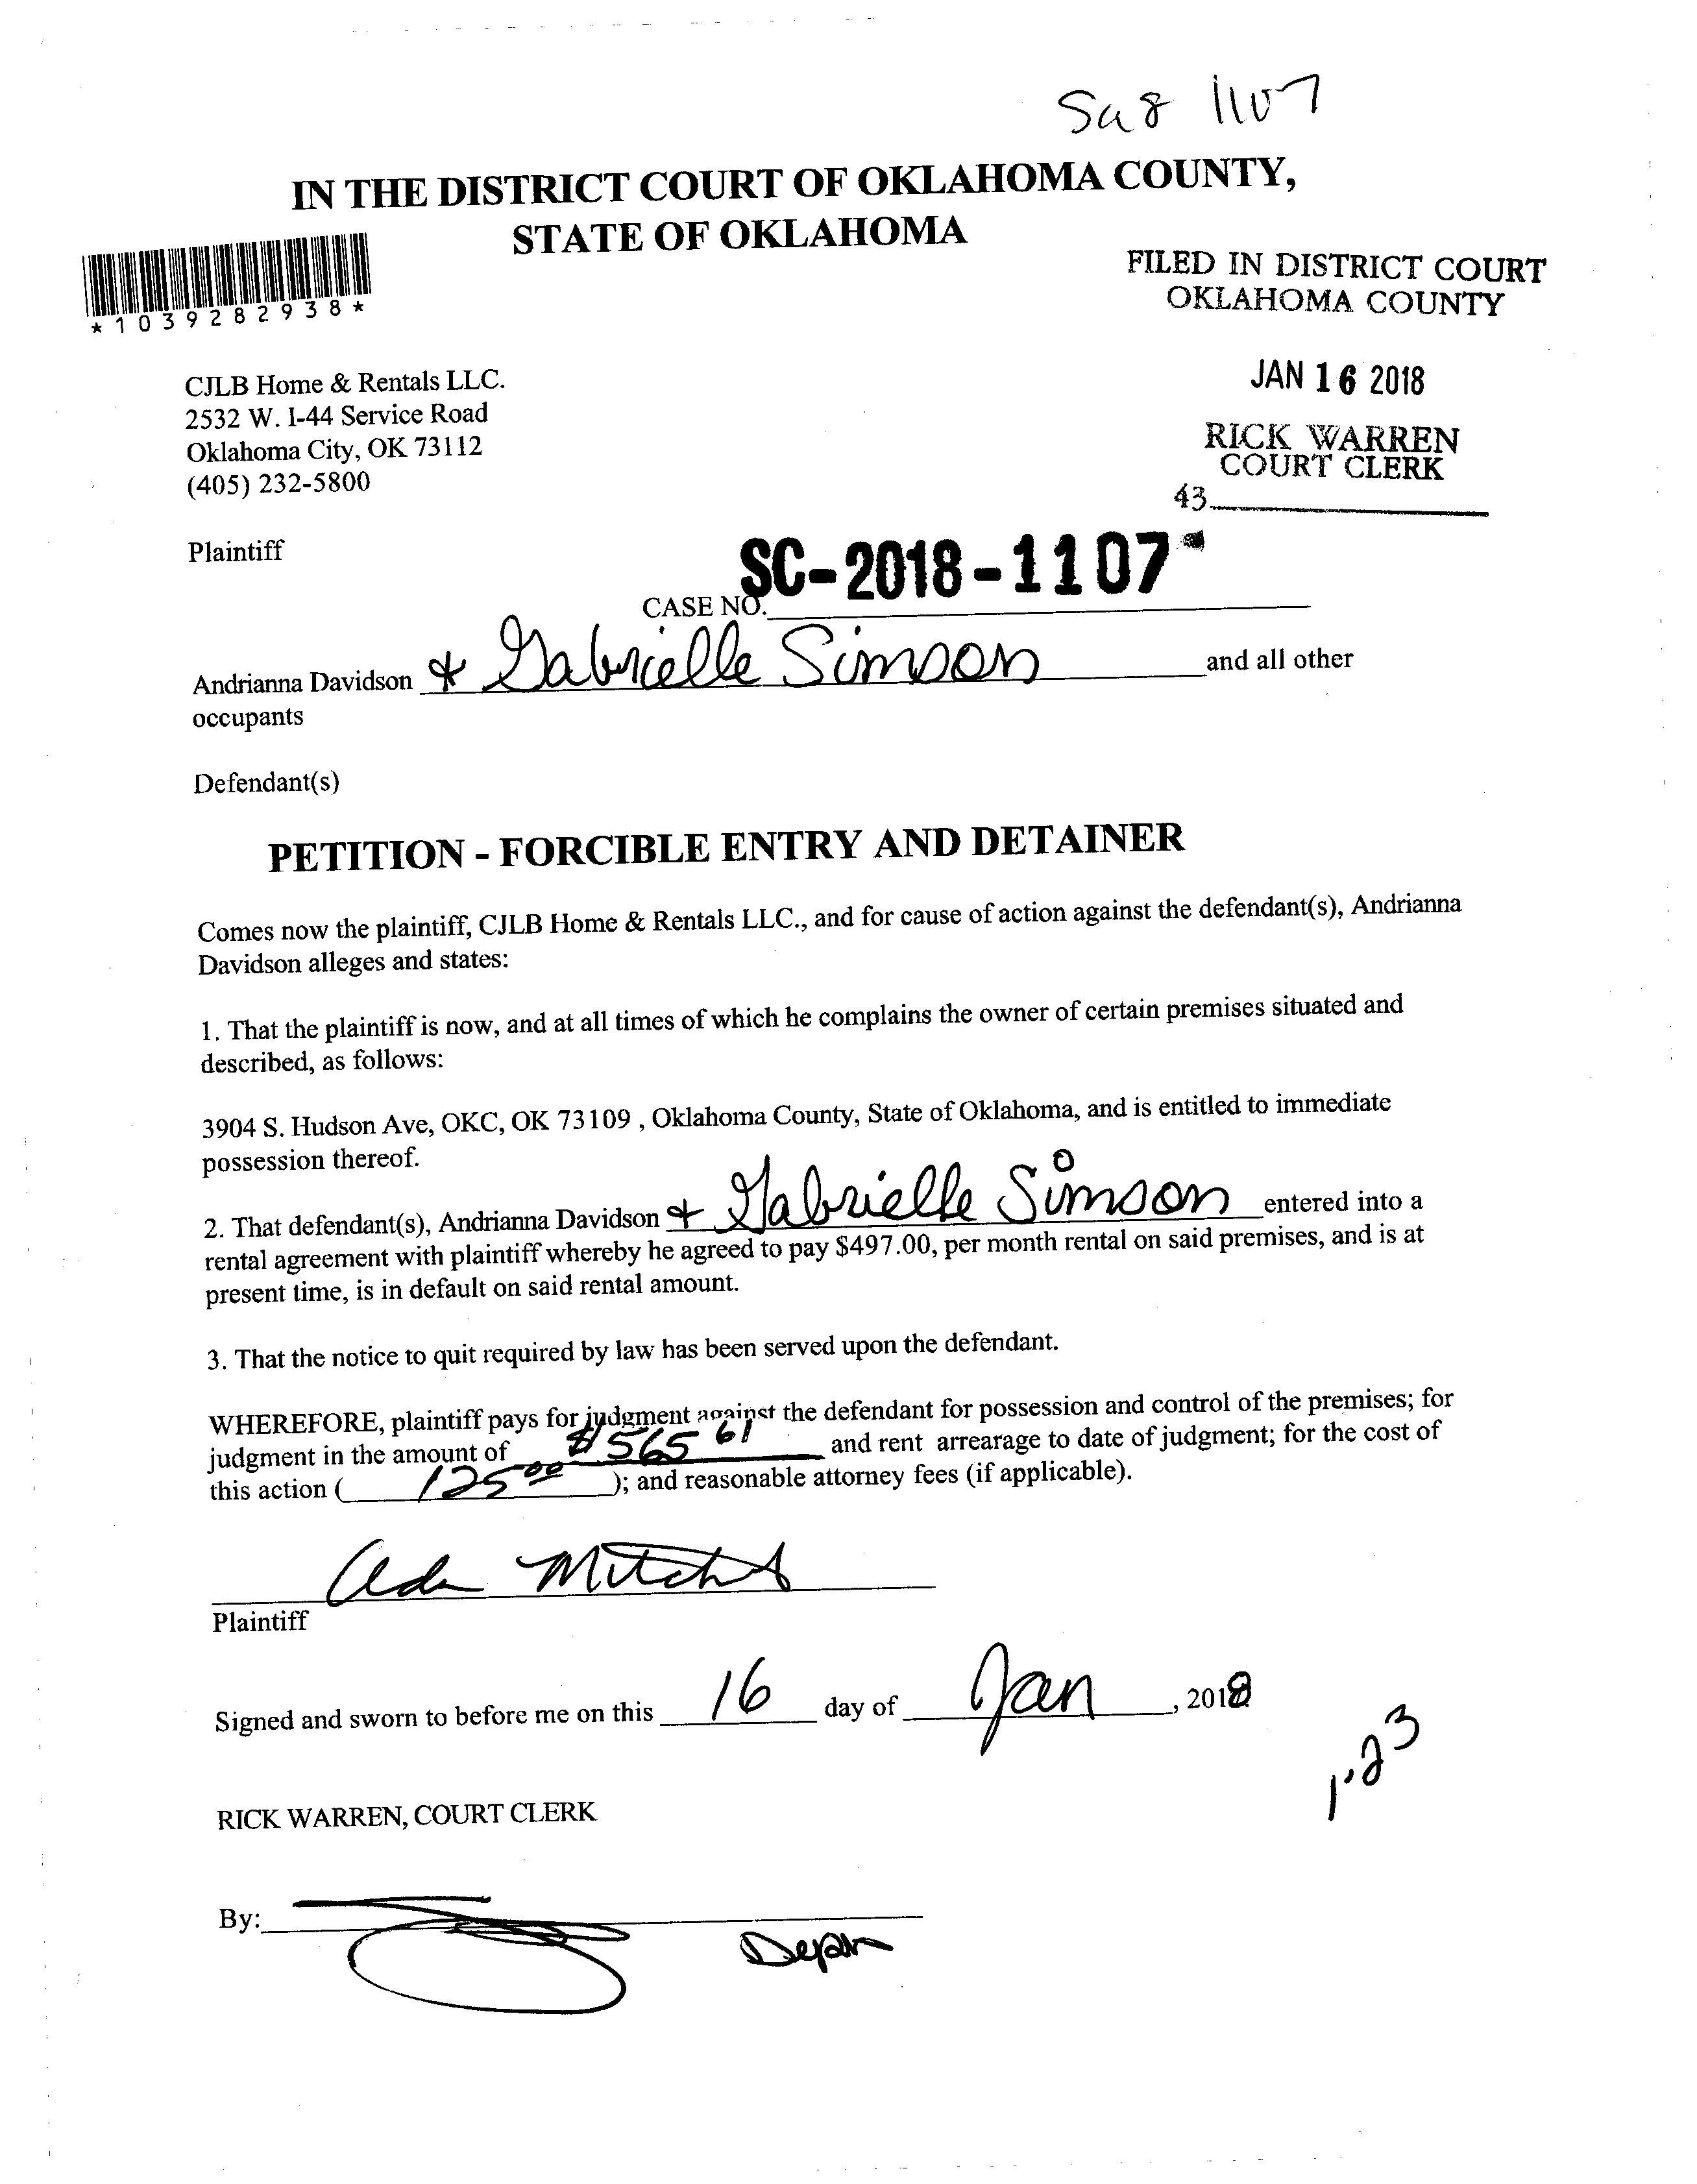 1107
IN THE DISTRICT COURT OF OKLAHOMA COUNTY,
STATE OF OKLAHOMA
*1039282938*
FILED IN DISTRICT COURT
OKLAHOMA COUNTY
JAN 16 2018
RICK WARREN
COURT CLERK
43
CJLB Home & Rentals LLC.
2532 W. I-44 Service Road
Oklahoma City, OK 73112
(405) 232-5800
Plaintiff
CASE NO. SC-2018-1107
Andrianna Davidson & Gabrielle Simson and all other
occupants
Defendant(s)
PETITION - FORCIBLE ENTRY AND DETAINER
Comes now the plaintiff, CJLB Home & Rentals LLC., and for cause of action against the defendant(s), Andrianna
Davidson alleges and states:
1. That the plaintiff is now, and at all times of which he complains the owner of certain premises situated and
described, as follows:
3904 S. Hudson Ave, OKC, OK 73109 , Oklahoma County, State of Oklahoma, and is entitled to immediate
possession thereof.
2. That defendant(s), Andrianna Davidson & Gabrielle Simson entered into a
rental agreement with plaintiff whereby he agreed to pay $497.00, per month rental on said premises, and is at
present time, is in default on said rental amount.
3. That the notice to quit required by law has been served upon the defendant.
WHEREFORE, plaintiff pays for judgment against the defendant for possession and control of the premises; for
judgment in the amount of $565 61 and rent arrearage to date of judgment; for the cost of
this action ( 125 00 ); and reasonable attorney fees (if applicable).
Plaintiff
Signed and sworn to before me on this 16 day of Jan , 2018
1.23
RICK WARREN, COURT CLERK
By: